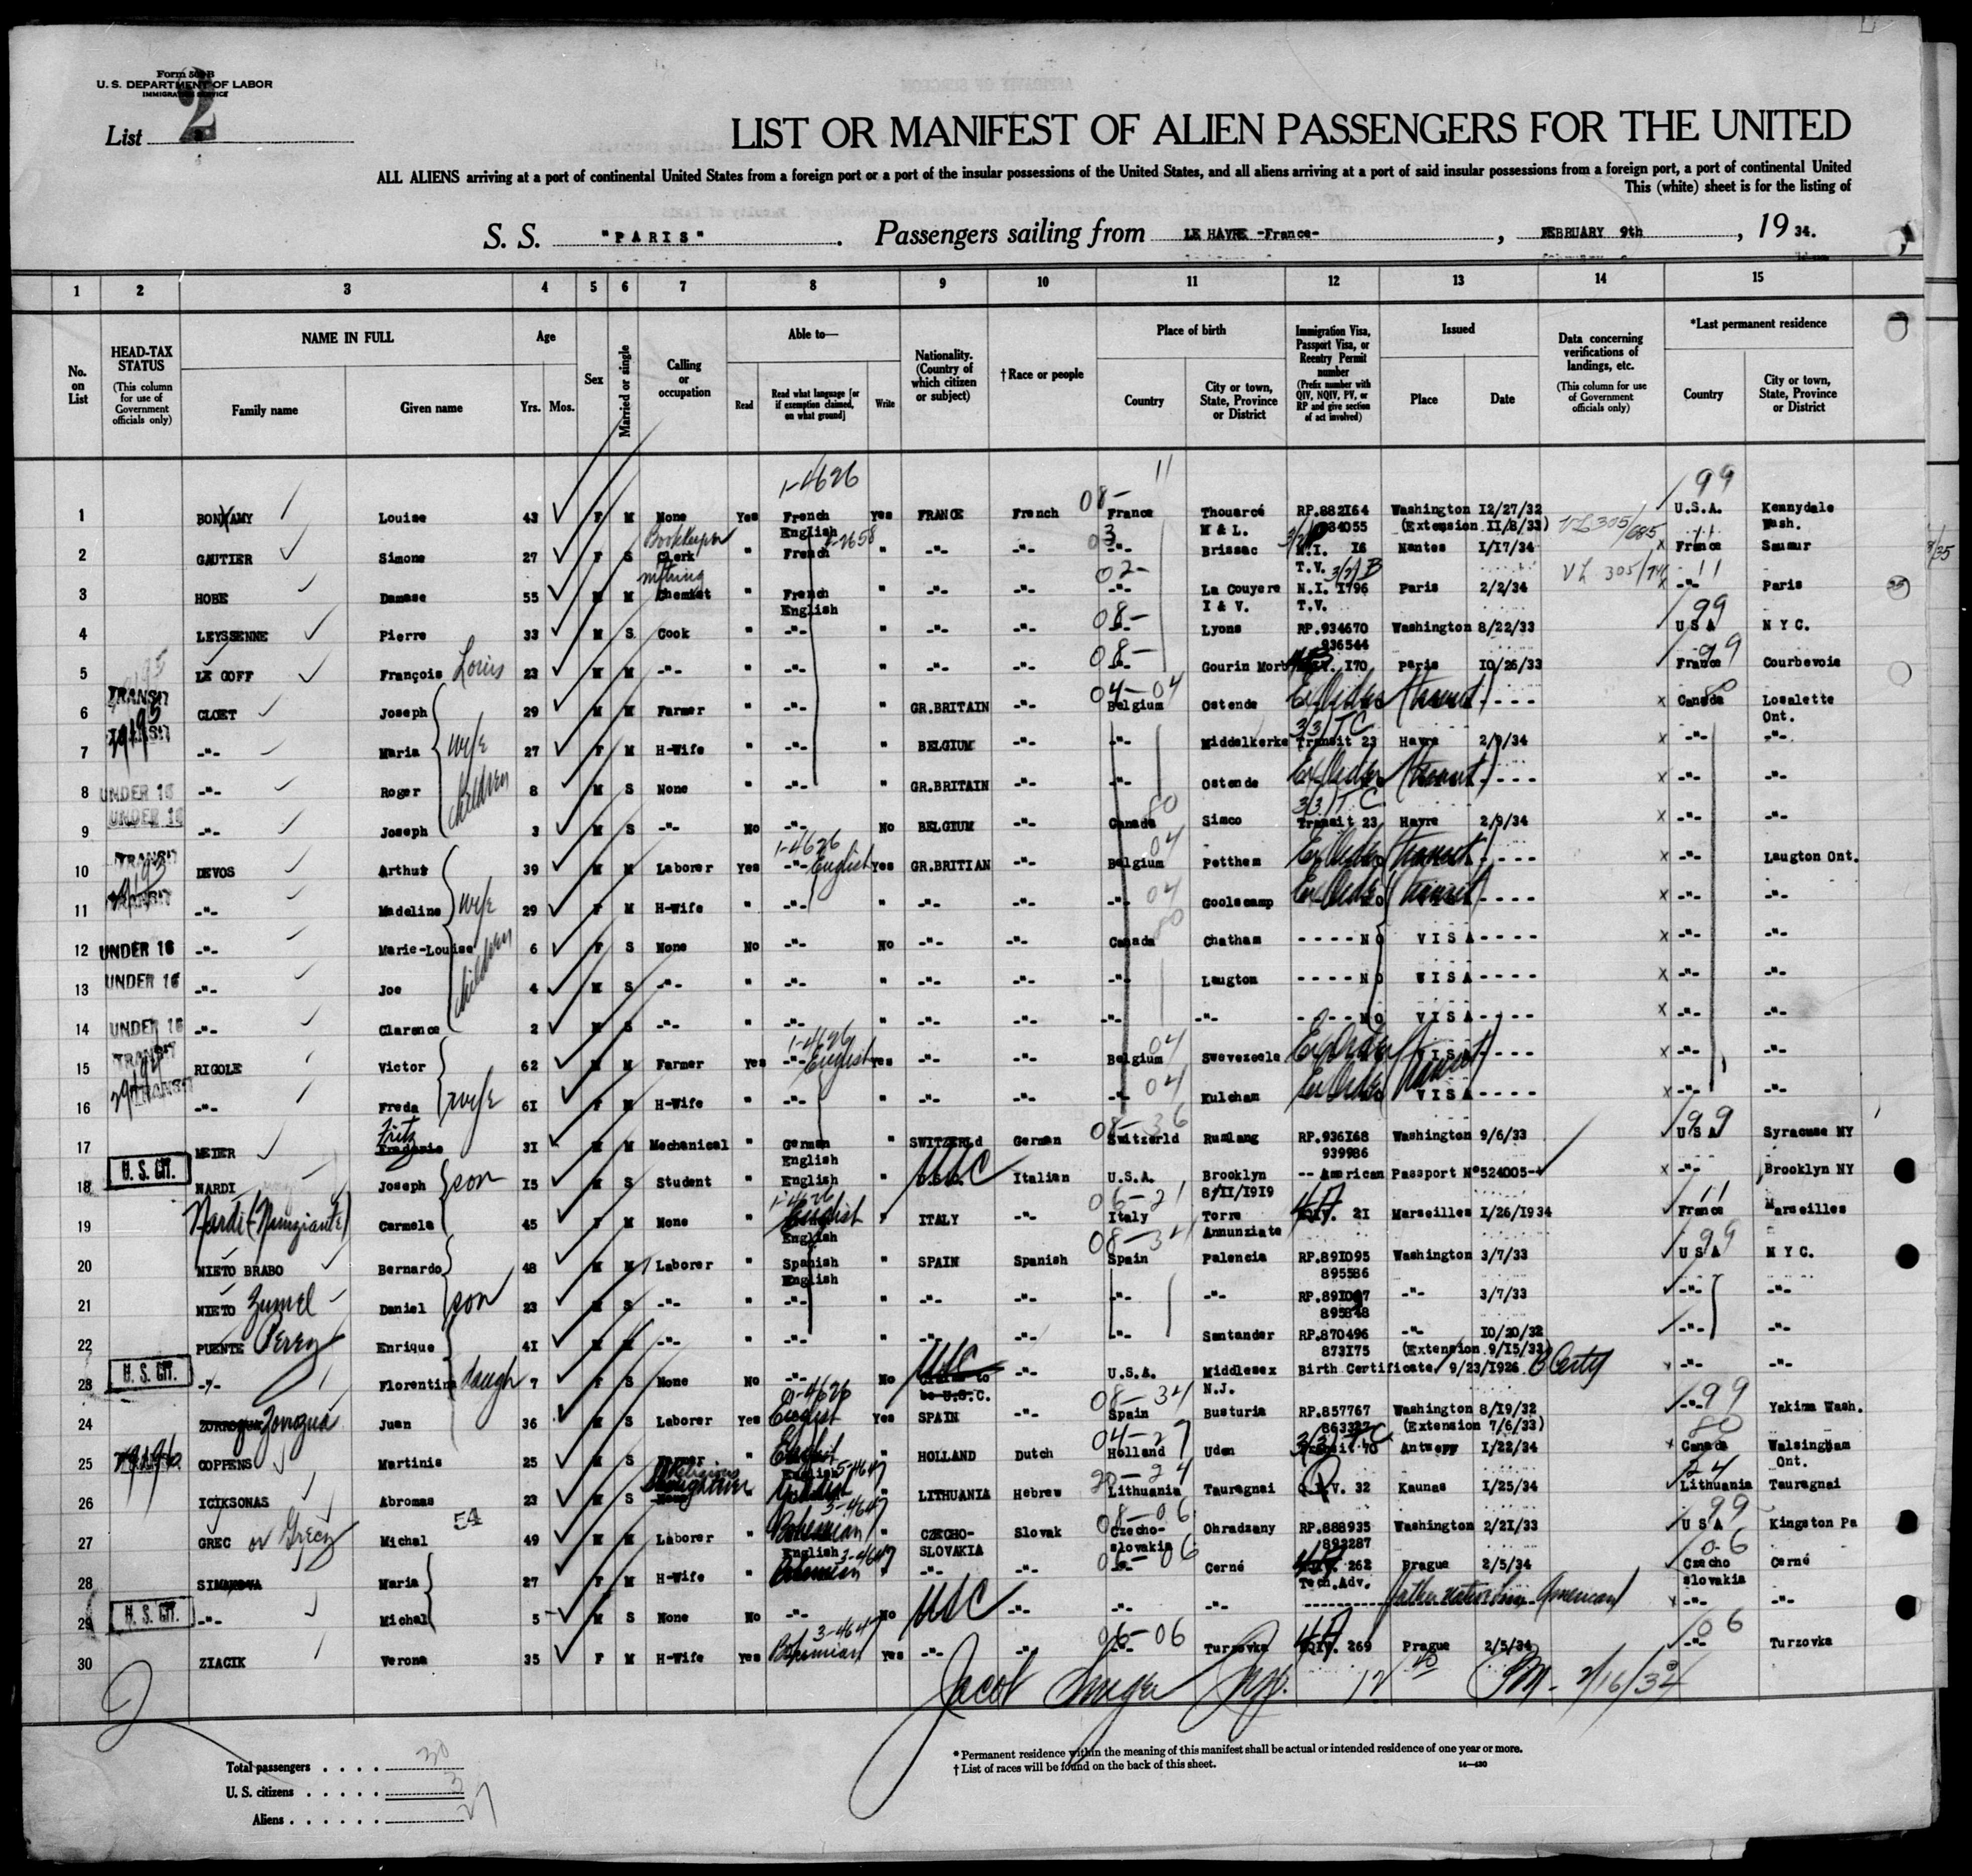 Form 500 B
U. S. DEPARTMENT OF LABOR
IMMIGRATION SERVICE
List 2
LIST OR MANIFEST OF ALIEN PASSENGERS FOR THE UNITED
ALL ALIENS arriving at a port of continental United States from a foreign port or a port of the insular possessions of the United States, and all aliens arriving at a port of said insular possessions from a foreign port, a port of continental United
This (white) sheet is for the listing of
S. S. "PARIS" . Passengers sailing from LE HAVRE -France- , FEBRUARY 9th , 19 34.
1 2 3 4 5 6 7 8 9 10 11 12 13 14 15
No. on List
HEAD-TAX STATUS (This column for use of Government officials only)
NAME IN FULL Family name Given name
Age Yrs. Mos.
Sex
Married or single
Calling or occupation
Able to— Read Read what language [or if exemption claimed, on what ground] Write
Nationality. (Country of which citizen or subject)
†Race or people
Place of birth Country City or town, State, Province or District
Immigration Visa, Passport Visa, or Reentry Permit number (Prefix number with QIV, NQIV, PV, or RP and give section of act involved)
Issued Place Date
Data concerning verifications of landings, etc. (This column for use of Government officials only)
*Last permanent residence Country City or town, State, Province or District
1-4626 11 99
1 BONXAMY Louise 43 F M None Yes French English Yes FRANCE French 08- France Thouarcé M & L. RP.882164 934055 Washington 12/27/32 (Extension 11/8/33) U.S.A. Kennydale Wash.
2 GAUTIER Simone 27 F S Bookkeeper Clerk " French " -"- -"- -"- Brissac N.I. 16 T.V. Nantes 1/17/34 VL 305/685 x France Saumur
3 HOBE Damase 55 M M nothing Chemist " French English " -"- -"- 02- -"- La Couyere I & V. 3/2/B N.I. 1796 T.V. Paris 2/2/34 VL 305/741 x -"- 11 Paris
4 LEYSSENNE Pierre 33 M S Cook " -"- " -"- -"- 08- -"- Lyons RP.934670 936544 Washington 8/22/33 99 U S A N Y C.
5 LE GOFF François Louis 23 M M -"- " -"- " -"- -"- 08- -"- Gourin Morb 170 Paris 10/26/33 99 France Courbevoie
6 TRANSIT CLOET Joseph 29 M M Farmer " -"- " GR.BRITAIN -"- 04-04 Belgium Ostende (transit) - - - - x Canada Losalette Ont.
7 TRANSIT -"- Maria wife 27 F M H-Wife " -"- " BELGIUM -"- -"- Middelkerke 3(3)TC Transit 23 Havre 2/9/34 x -"- -"-
8 UNDER 16 -"- Roger children 8 M S None " -"- " GR.BRITAIN -"- -"- Ostende (transit) - - - - x -"- -"-
9 UNDER 16 -"- Joseph 3 M S -"- No -"- No BELGIUM -"- 80 Canada Simco 3(3)T.C Transit 23 Havre 2/9/34 x -"- -"-
10 TRANSIT DEVOS Arthur 39 M M Laborer Yes 1-4626 -"- English Yes GR.BRITIAN -"- 04 Belgium Petthem (transit) - - - - x -"- Laugton Ont.
11 TRANSIT -"- Madeline wife 29 F M H-Wife " -"- " -"- -"- -"- 04 Goolscamp (transit) - - - - x -"- -"-
12 UNDER 16 -"- Marie-Louise 6 F S None No -"- No -"- -"- 80 Canada Chatham - - - - NO VISA - - - - x -"- -"-
13 UNDER 16 -"- Joe children 4 M S -"- " -"- " -"- -"- -"- Laugton - - - - NO VISA - - - - x -"- -"-
14 UNDER 16 -"- Clarence 2 M S -"- " -"- " -"- -"- -"- -"- - - - - NO VISA - - - - x -"- -"-
15 TRANSIT RIGOLE Victor 62 M M Farmer Yes 1-4626 -"- English Yes -"- -"- 04 Belgium Swevezeele VISA - - - - x -"- -"-
16 TRANSIT -"- Freda wife 61 F M H-Wife " -"- " -"- -"- -"- 04 Kulcham (transit) VISA - - - - x -"- -"-
17 MEIER Fritz Frederic 31 M M Mechanical " German English " SWITZERLd German 08-36 Switzerld Rumlang RP.936168 939986 Washington 9/6/33 99 U S A Syracuse NY
18 U. S. CIT. NARDI Joseph son 15 M S Student " English " USC Italian U.S.A. Brooklyn 8/11/1919 -- American Passport Nº524005-- x -"- Brooklyn NY
19 Nardi (Nunziante) Carmela 45 F M None " 1-4626 English " ITALY -"- 06-21 Italy Torre Annunziate 21 Marseilles 1/26/1934 11 France Marseilles
20 NIETO BRABO Bernardo 48 M M Laborer " English Spanish English " SPAIN Spanish 08-34 Spain Palencia RP.891095 895586 Washington 3/7/33 99 U S A N Y C.
21 NIETO Zumel Daniel son 23 M S -"- " -"- " -"- -"- -"- -"- RP.891097 895848 -"- 3/7/33 -"- -"-
22 PUENTE Perez Enrique 41 M M -"- " -"- " -"- -"- -"- Santander RP.870496 873175 -"- 10/20/32 (Extension 9/15/33) -"- -"-
23 U. S. CIT. -"- Florentina daugh 7 F S None No -"- No USC be U.S.C. -"- U.S.A. Middlesex N.J. Birth Certificate 9/23/1926 x -"- -"-
24 Zorrozua Juan 36 M S Laborer Yes 1-4626 English Yes SPAIN -"- 08-34 Spain Busturia RP.857767 863327 Washington 8/19/32 (Extension 7/6/33) 99 -"- Yakima Wash.
25 COPPENS Martinis 25 M S " English " HOLLAND Dutch 04-27 Holland Uden 3(3)TC Transit 70 Antwerp 1/22/34 x 80 Canada Walsingham Ont.
26 ICIKSONAS Abromas 23 M S Religious " 5-4647 " LITHUANIA Hebrew 20-24 Lithuania Tauragnai Q.I.V. 32 Kaunas 1/25/34 24 Lithuania Tauragnai
27 GREC or Grecz Michal 54 49 M M Laborer " 3-4647 Bohemian English " CZECHO-SLOVAKIA Slovak 08-06 Czecho-slovakia Ohradzany RP.888935 892287 Washington 2/21/33 99 U S A Kingston Pa
28 SIMAKOVA Maria 27 F M H-Wife " 3-4647 Bohemian " -"- -"- 06-06 -"- Cerné 262 Tech.Adv. Prague 2/5/34 06 Czecho slovakia Cerné
29 U. S. CIT. -"- Michal 5 M S None No -"- No USC -"- -"- -"- Father native born American x -"- -"-
30 ZIACIK Verona 35 F M H-Wife Yes 3-4647 Bohemian Yes -"- -"- 06-06 -"- Turzovka 269 Prague 2/5/34 06 -"- Turzovka
Jacob Singer Insp. PM- 2/16/34
Total passengers . . . . 30
U. S. citizens . . . . . 3
Aliens . . . . . . 27
* Permanent residence within the meaning of this manifest shall be actual or intended residence of one year or more.
† List of races will be found on the back of this sheet. 14—430